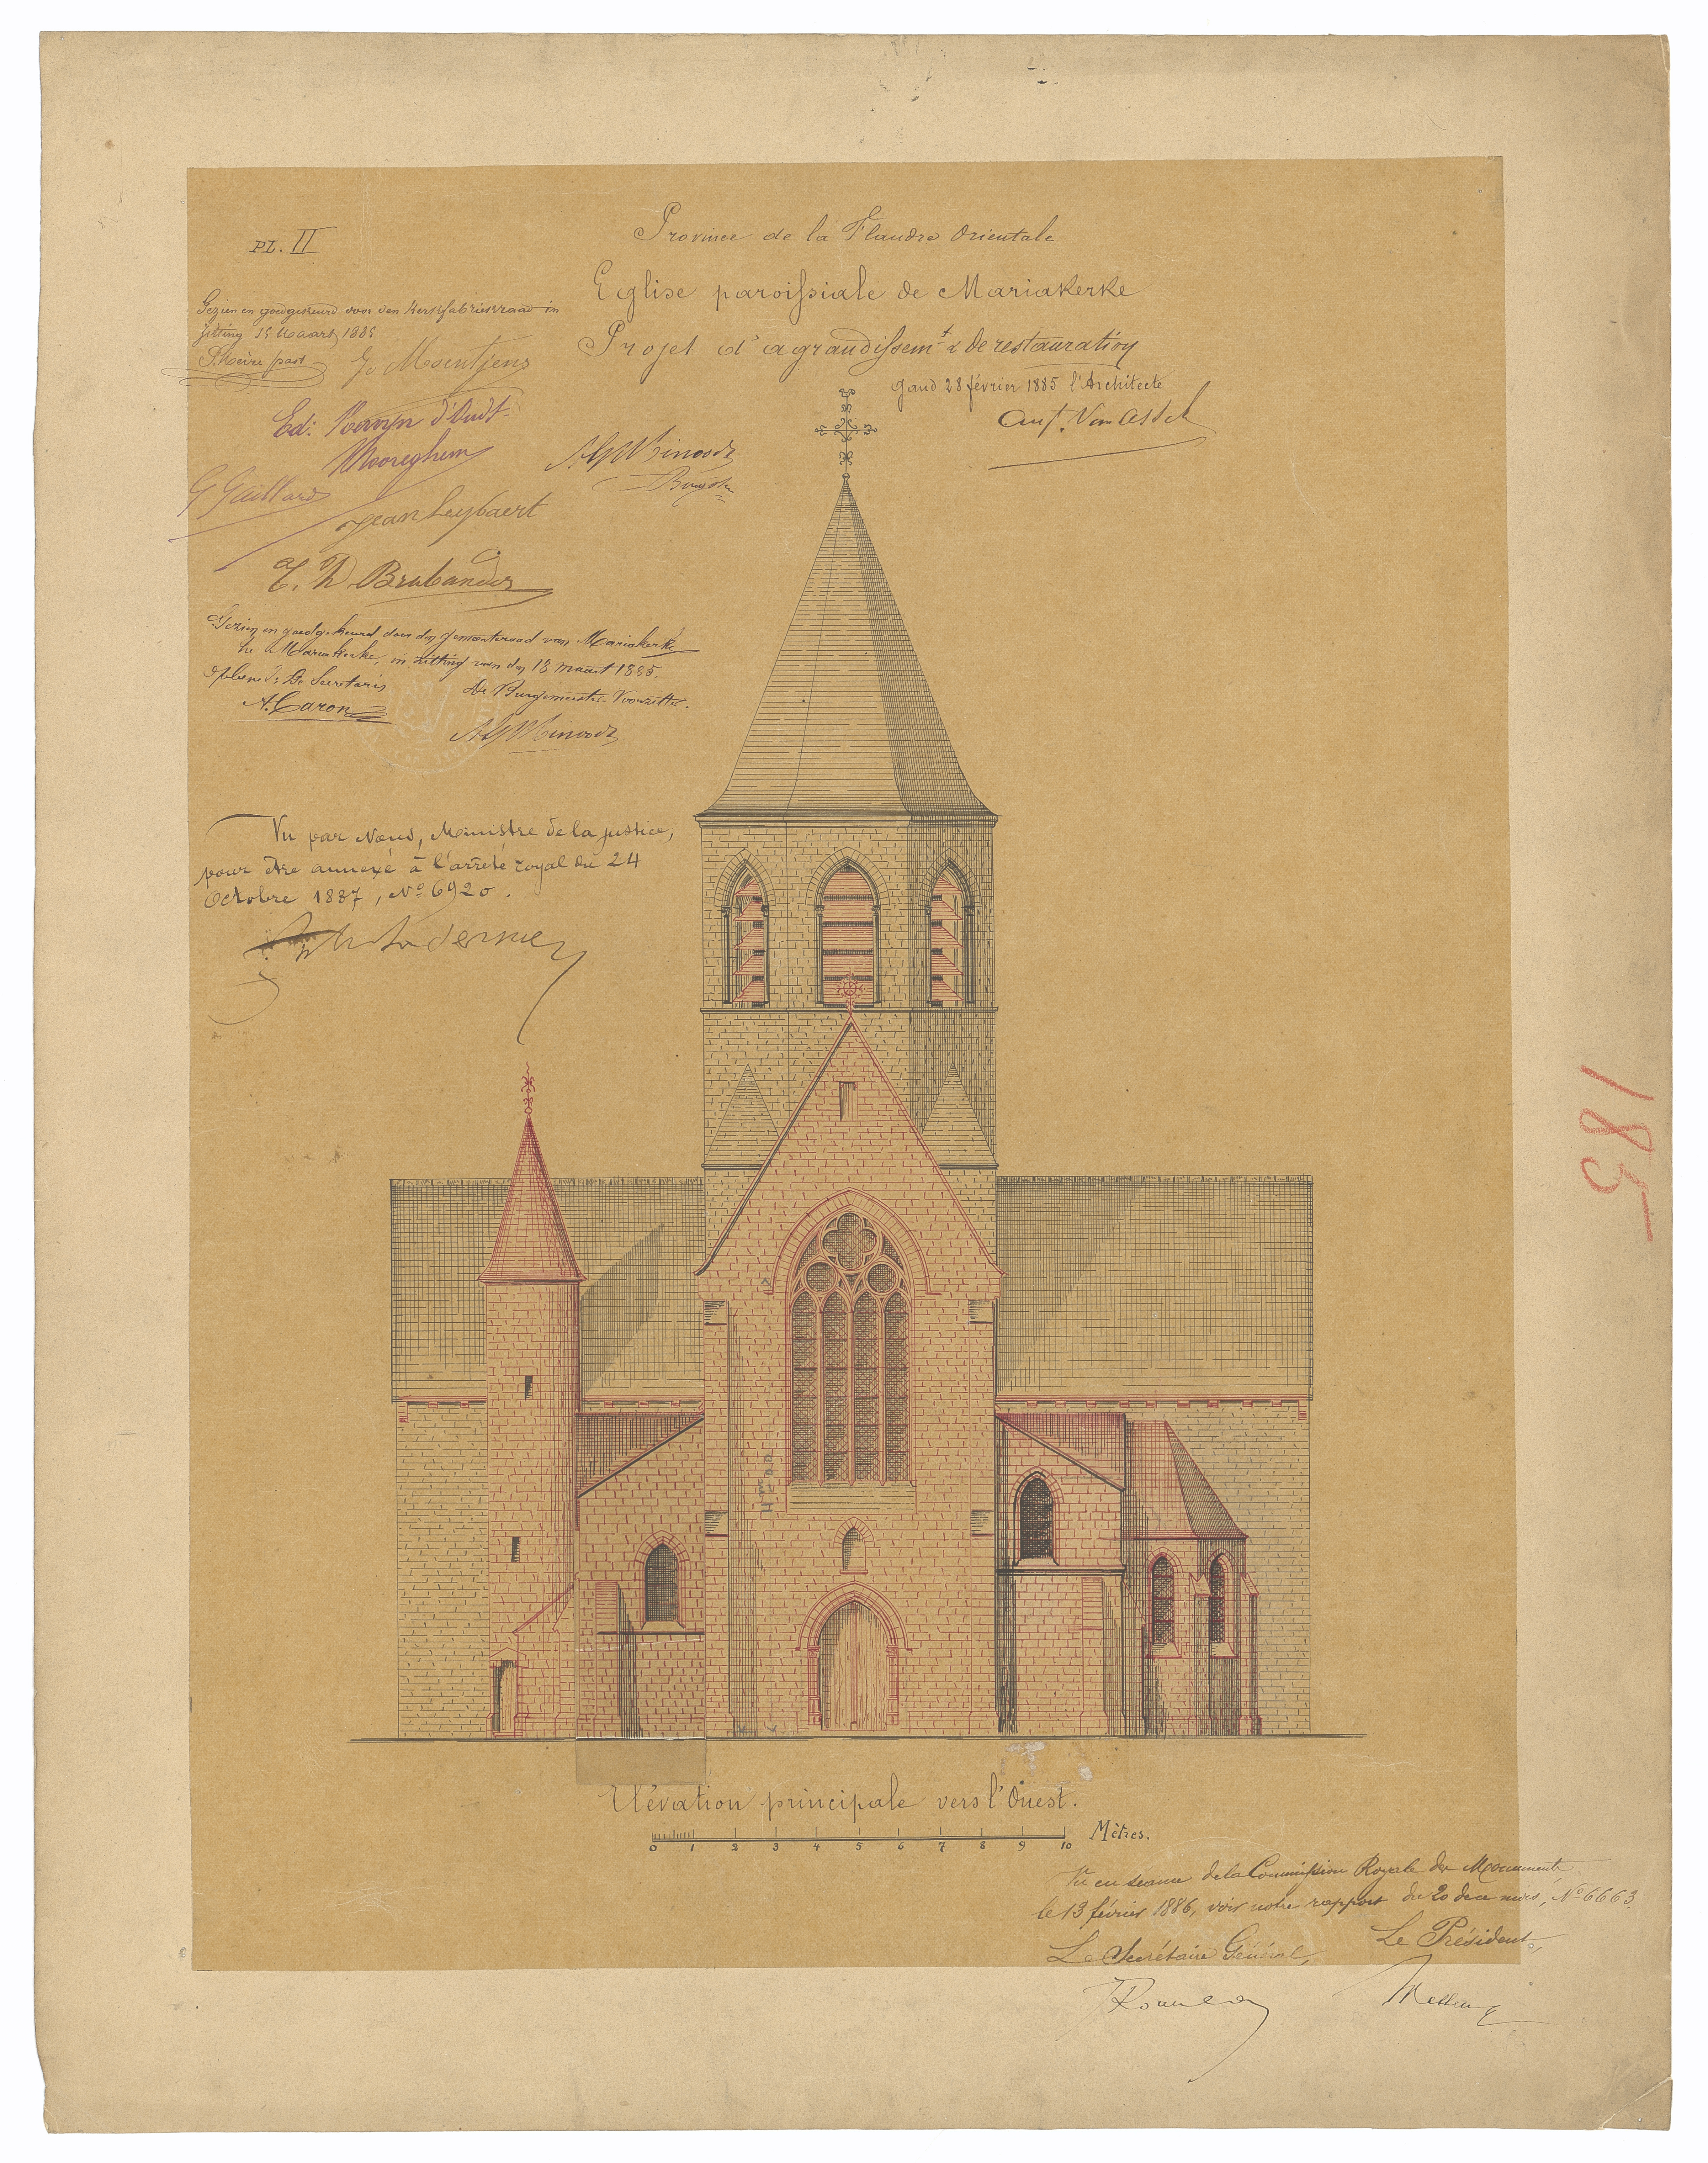 Province de la Flandre Orientale
PL. II
Eglise paroissiale de Mariakerke
Projet d'agrandissemt & de restauration
Gand 28 février 1885 l'Architecte
Aug. Van Assche
Gezien en goedgekeurd door den Kerkfabriekraad in
zitting 15 Maart 1885
past
Ed: Kervyn d'Oudt-
Mooreghem
G Gaillard
Jean Leybaert
Brabander
Gezien en goedgekeurd door den gemeenteraad van Mariakerke
te Mariakerke, in zitting van den 13 maart 1885.
De Secretaris
De Burgemeester-Voorzitter.
A. Caron
Vu par Nous, Ministre de la justice,
pour être annexé à l'arrêté royal du 24
Octobre 1887, No 6920.
185
Elévation principale vers l'Ouest.
0 1 2 3 4 5 6 7 8 9 10 Mètres.
Vu en séance de la Commission Royale des Monuments
le 13 février 1886, voir notre rapport du 20 de ce mois, No 6663.
Le Secrétaire Général,
Le Président,